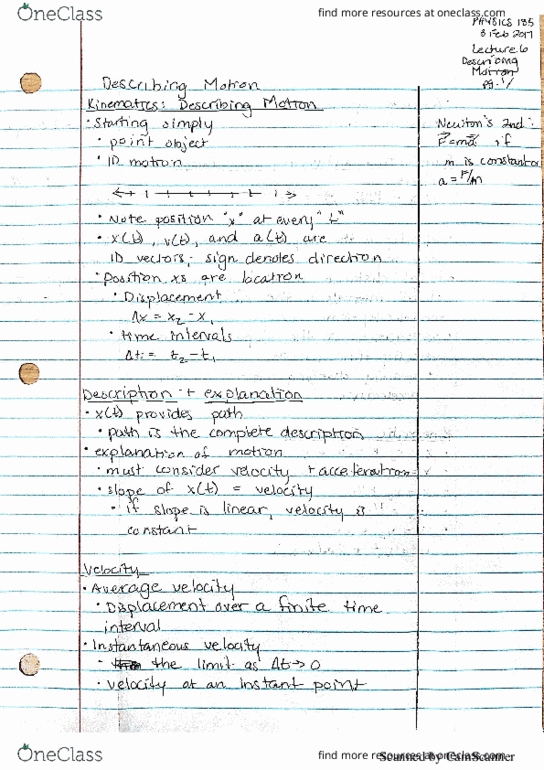 OneClass
find more resources at oneclass.com
PHYSICS 135
8 Feb 2017
Lecture 6
Describing
Motion
pg. 1/
Describing Motion
Kinematics: Describing Motion
• Starting simply
• point object
• 1D motion
• Note position "x" at every "t"
• x(t), v(t), and a(t) are
1D vectors; sign denotes direction
• Position xs are location
• Displacement
Δx = x₂ - x₁
• time intervals
Δt = t₂ - t₁
Newton's 2nd:
F=ma, if
m is constant
a = F/m
Description + explanation
• x(t) provides path
• path is the complete description
• explanation of motion
• must consider velocity + acceleration
• slope of x(t) = velocity
• if slope is linear, velocity is
constant
Velocity
• Average velocity
• Displacement over a finite time
interval
• Instantaneous velocity
• the limit as Δt→0
• velocity at an instant point
OneClass
find more resources at oneclass.com
Scanned by CamScanner